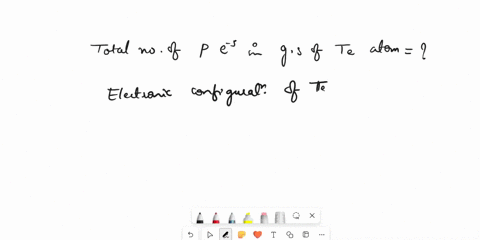 Total no. of P e⁻s in g.s of Te atom = ?
Electronic configuratⁿ. of Te